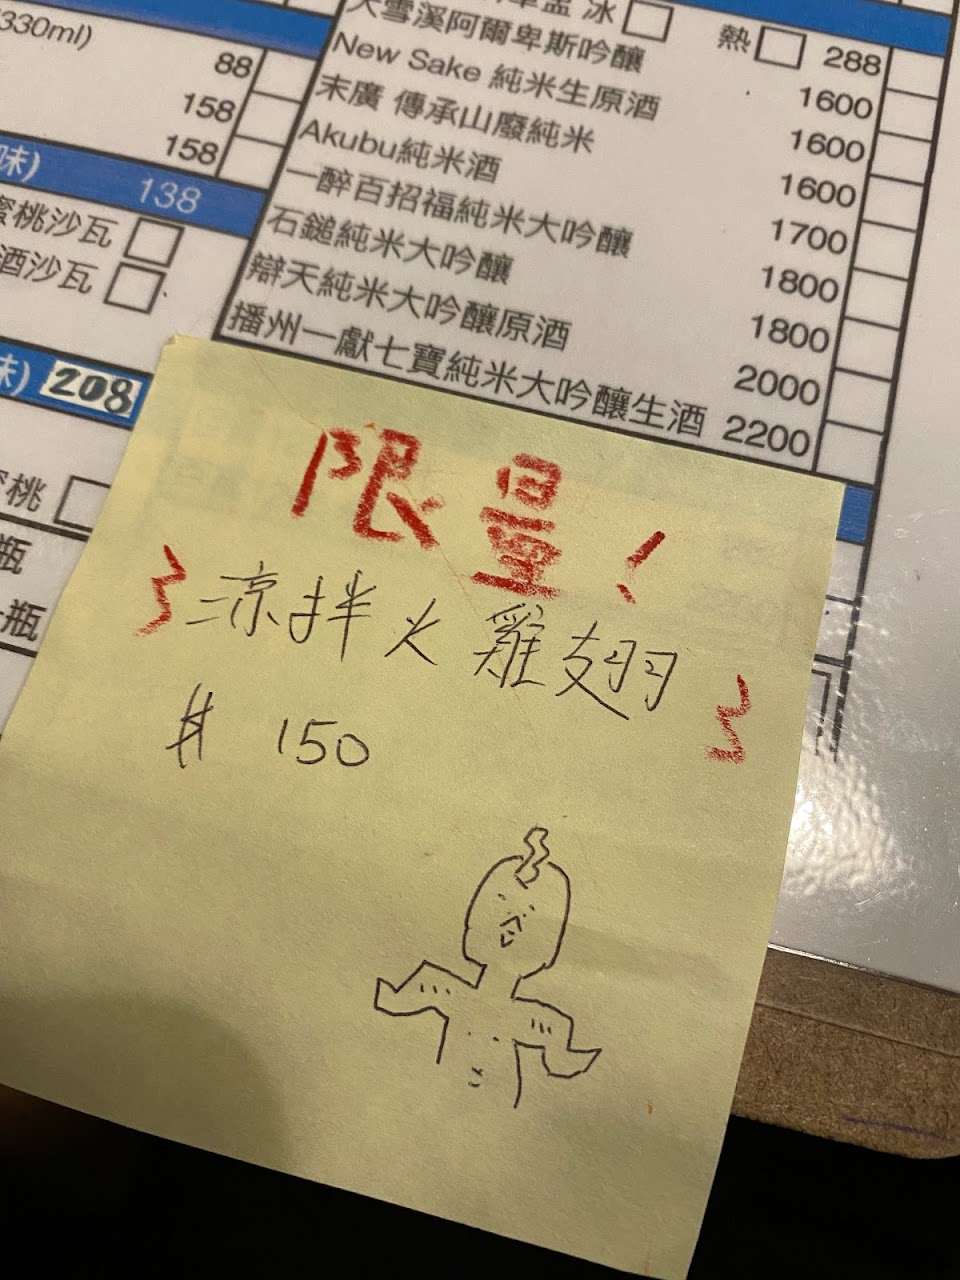 330ml)
88
158
158
味) 138
桃沙瓦
酒沙瓦
味) 208
桃
瓶
瓶
冰 熱 288
大雪溪阿爾卑斯吟釀 1600
New Sake 純米生原酒 1600
末廣 傳承山廢純米 1600
Akubu純米酒 1700
一醉百招福純米大吟釀 1800
石鎚純米大吟釀 1800
辯天純米大吟釀原酒 2000
播州一獻七寶純米大吟釀生酒 2200
限量!
涼拌火雞翅
# 150